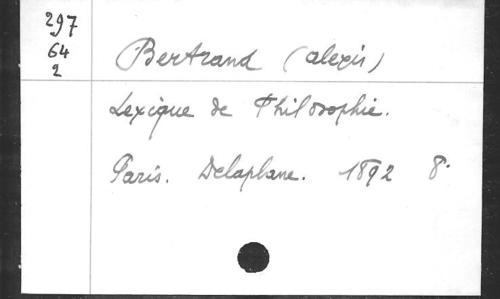 297
64
2
Bertrand (alexis)
Lexique de Philosophie.
Paris. Delaplane. 1892 8°